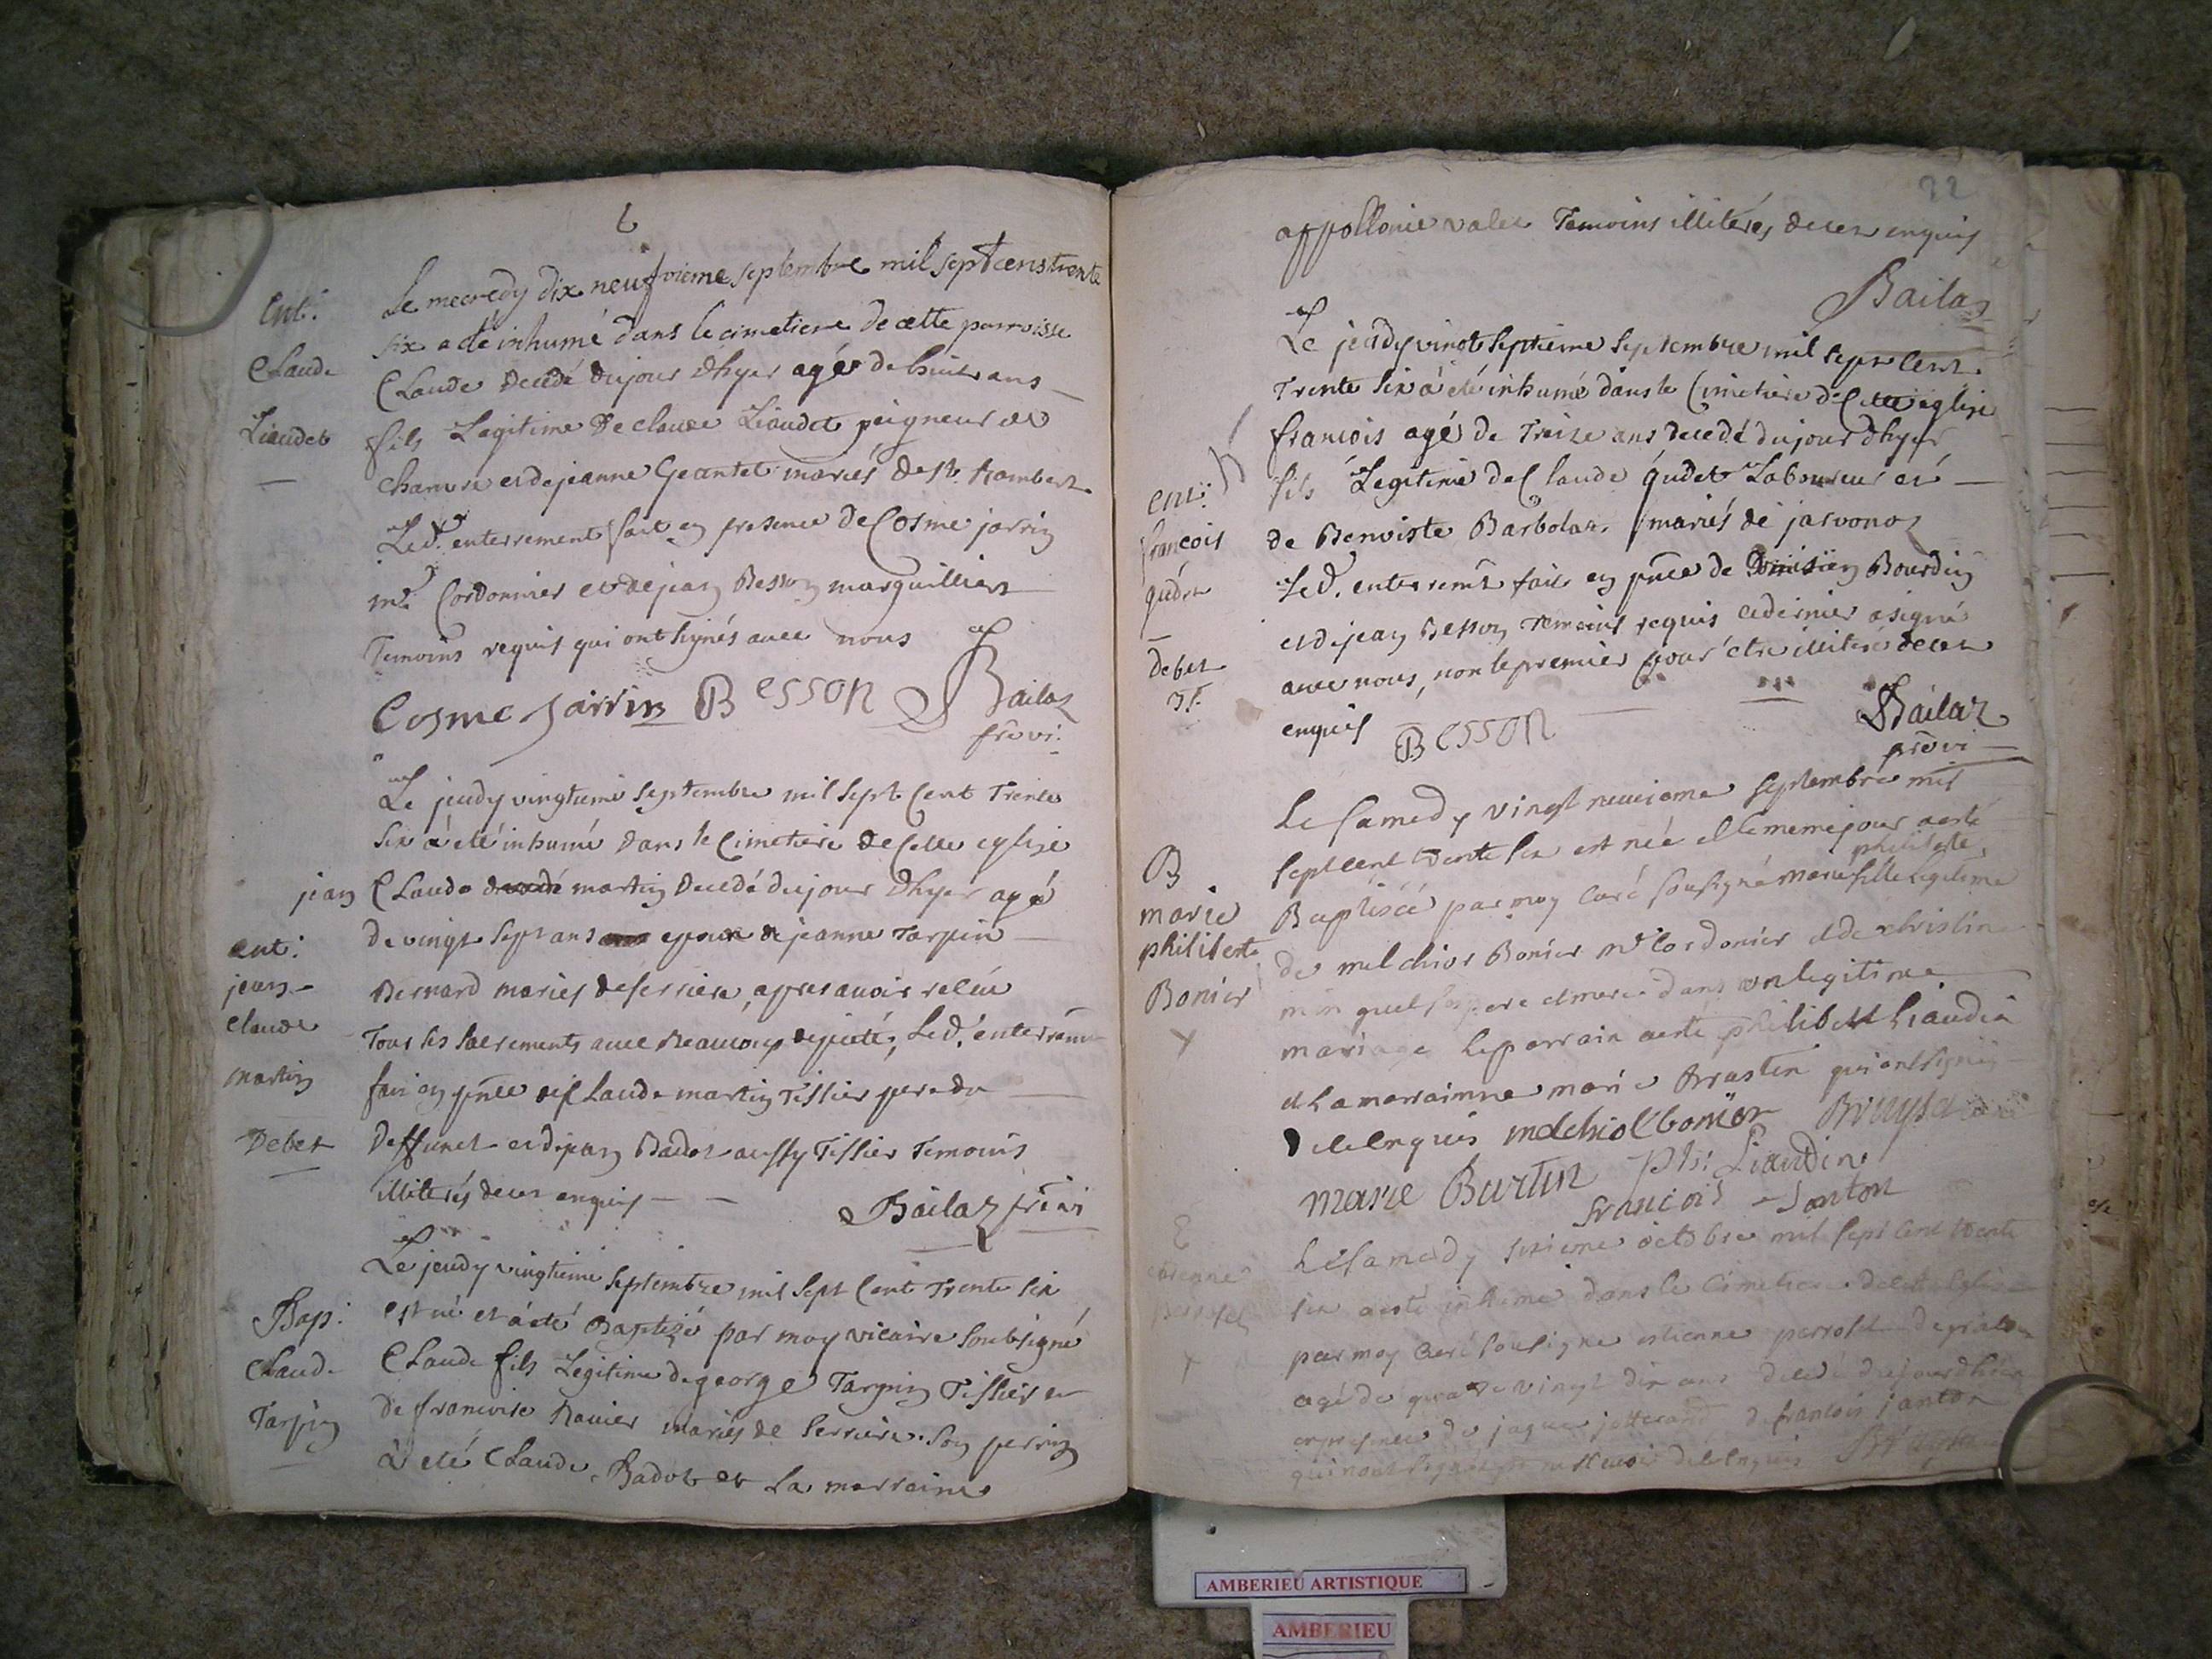 6
Le mecredy dix neufvieme septembre mil sept cens trente
six a eté inhumé dans le cimetiere de cette parroisse
Claude decedé du jour d'hyer agé de huit ans
fils Legitime de claude Liaudet peigneur de
chanvre et de jeanne Geantet mariés de St. Rambert
Led. enterrement fait en presence de Cosme jarrin
me. Cordonnier et de jean Besson marguilliers
Temoins requis qui ont signés avec nous
Cosme Jarrin Besson Bailaz
ent:
Claude
Liaudet
Le jeudy vingtieme septembre mil sept Cent Trente
Six à eté inhumé dans le Cimetiere de Cette eglise
jean Claude martin decedé du jour d'hyer agé
de vingt sept ans epoux de jeanne Tarpin
Bernard mariés de serriere, apres avoir recüe
Tous les sacrements avec beaucoup de pieté, Led. enterrem
fait en pnce de Claude martin Tissier pere du
deffunct et de jean Badot aussy Tissier Temoins
illiterés de ce enquis
Bailaz
ent:
jean
claude
martin
Debet
Le jeudy vingtieme septembre mil sept Cent Trente Six
est né et à eté Baptizé par moy vicaire soubsigné
Claude fils Legitime de george Tarpin Tissier et
de francoise Ravier mariés de serriere. son perrin
à eté Claude Badot et La marraine
Bap:
Claude
Tarpin
22
appollonie valet Temoins illiterés de ce enquis
Bailaz
Le jeudy vingt septieme septembre mil sept Cent
Trente six à eté inhumé dans le Cimetiere de Cette eglise
francois agé de Treize ans decedé du jour d'hyer
fils Legitime de Claude gudet Laboureur et
de Benoiste Barbolat mariés de jarvonoz
Led. enterremt fait en pnce de Bourdin
et de jean Besson Temoins requis ce dernier a signé
avec nous, non le premier pour être illiteré de ce
enquis Besson Bailaz
ent:
francois
gudet
debet
Le samedy vingt neuvieme septembre mil
sept cent trente six est née et le meme jour a esté
Baptisée par moy curé soussigné marie philiberte fille legitime
de melchior Bonier me Cordonier et de christine
ses pere et mere dans un legitime
mariage le parrain a esté philibert Liaudin
et la marrainne marie qui ont signés
de ce enquis melchiol bonier
marie Burtin phi: Liaudin
francois Janton
B
marie
philiberte
Bonier
Le samedy sixieme octobre mil sept cent trente
six a esté inhumé dans le cimetiere de cette Eglise
par moy curé sousigné estienne perrolet de
agé de quatre vingt dix ans decedé du jour d'hier
en presence de jaque et de francois janton
E
estienne
AMBERIEU ARTISTIQUE
AMBERIEU